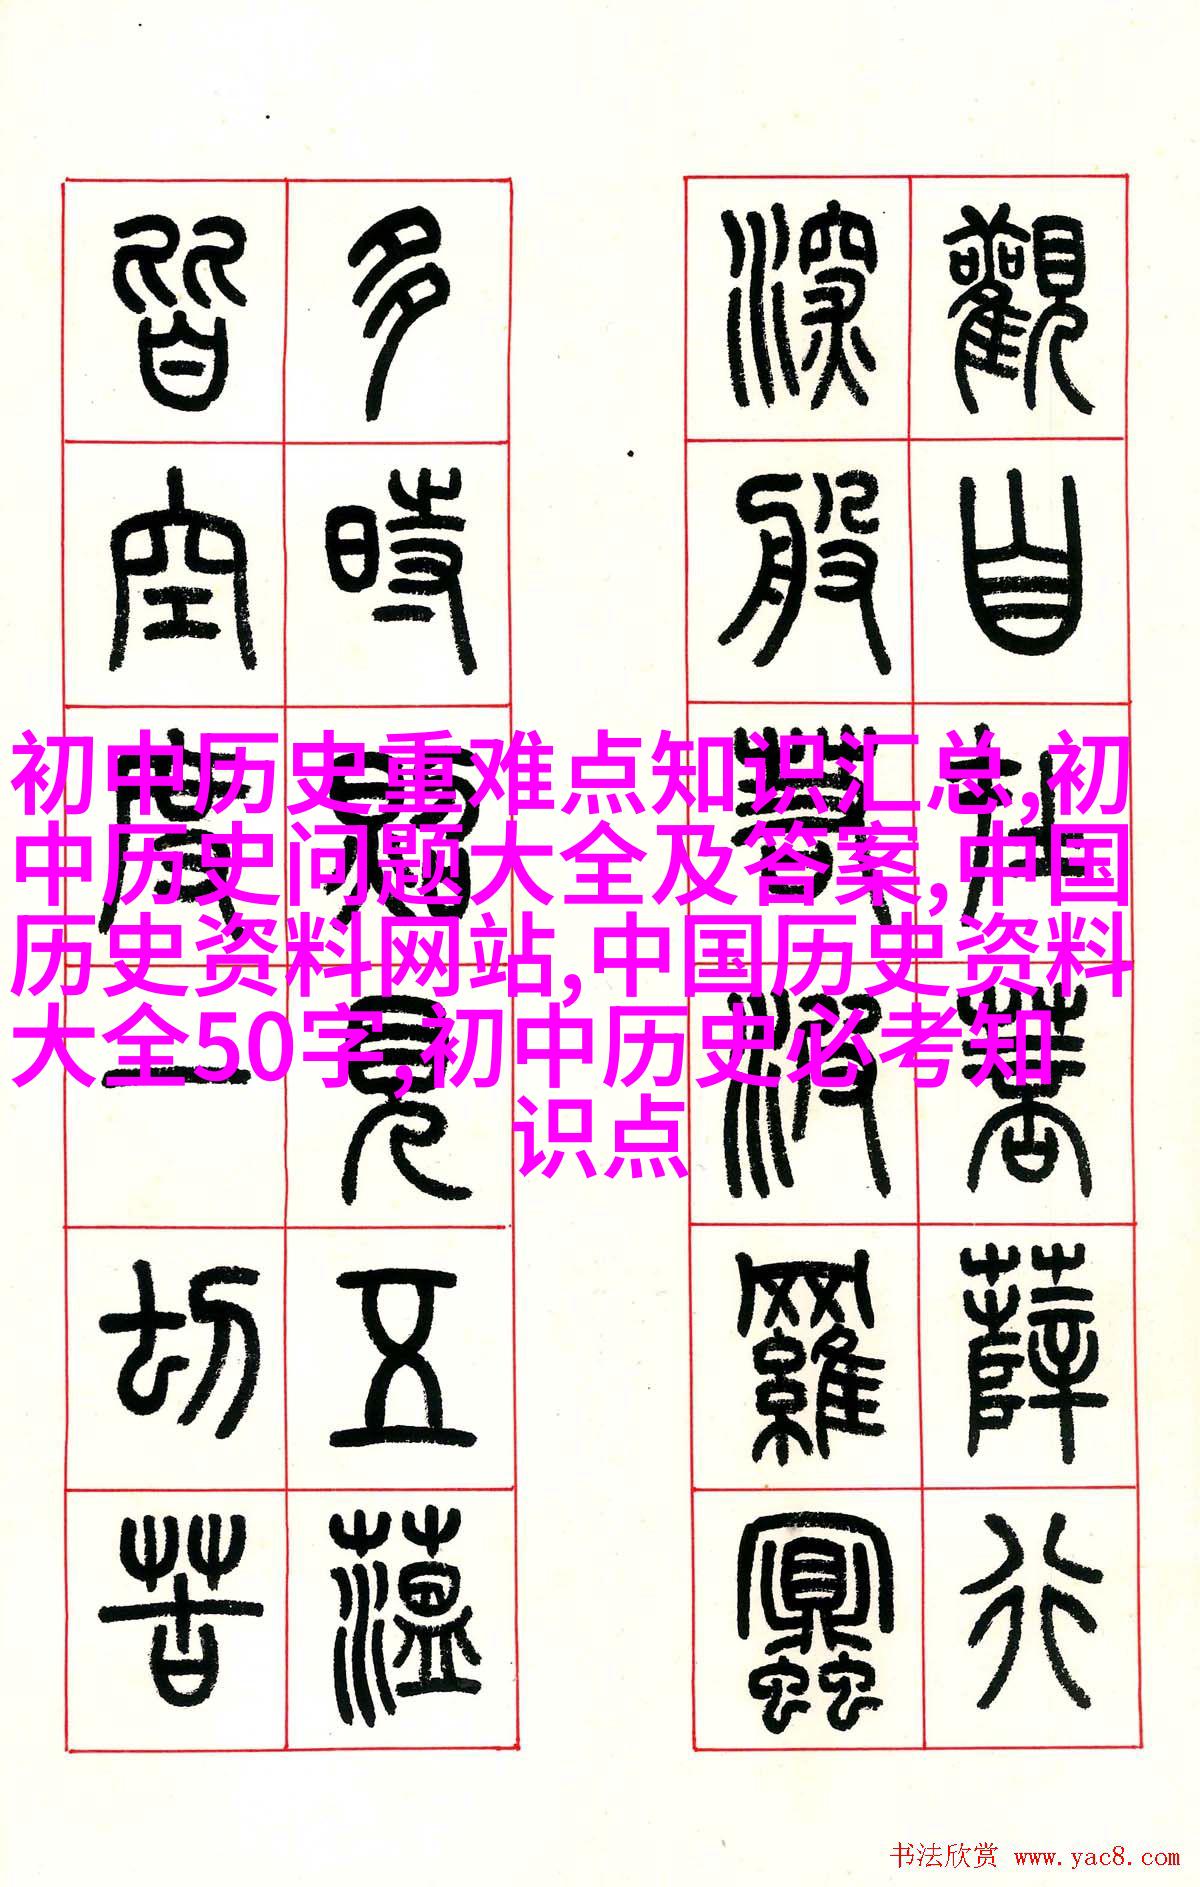 觀自在菩薩行
深般若波羅蜜
多時照見五薀
皆空度一切苦
初中历史重难点知识汇总,初
中历史问题大全及答案,中国
历史资料网站,中国历史资料
大全50字,初中历史必考知
识点
书法欣赏 www.yac8.com